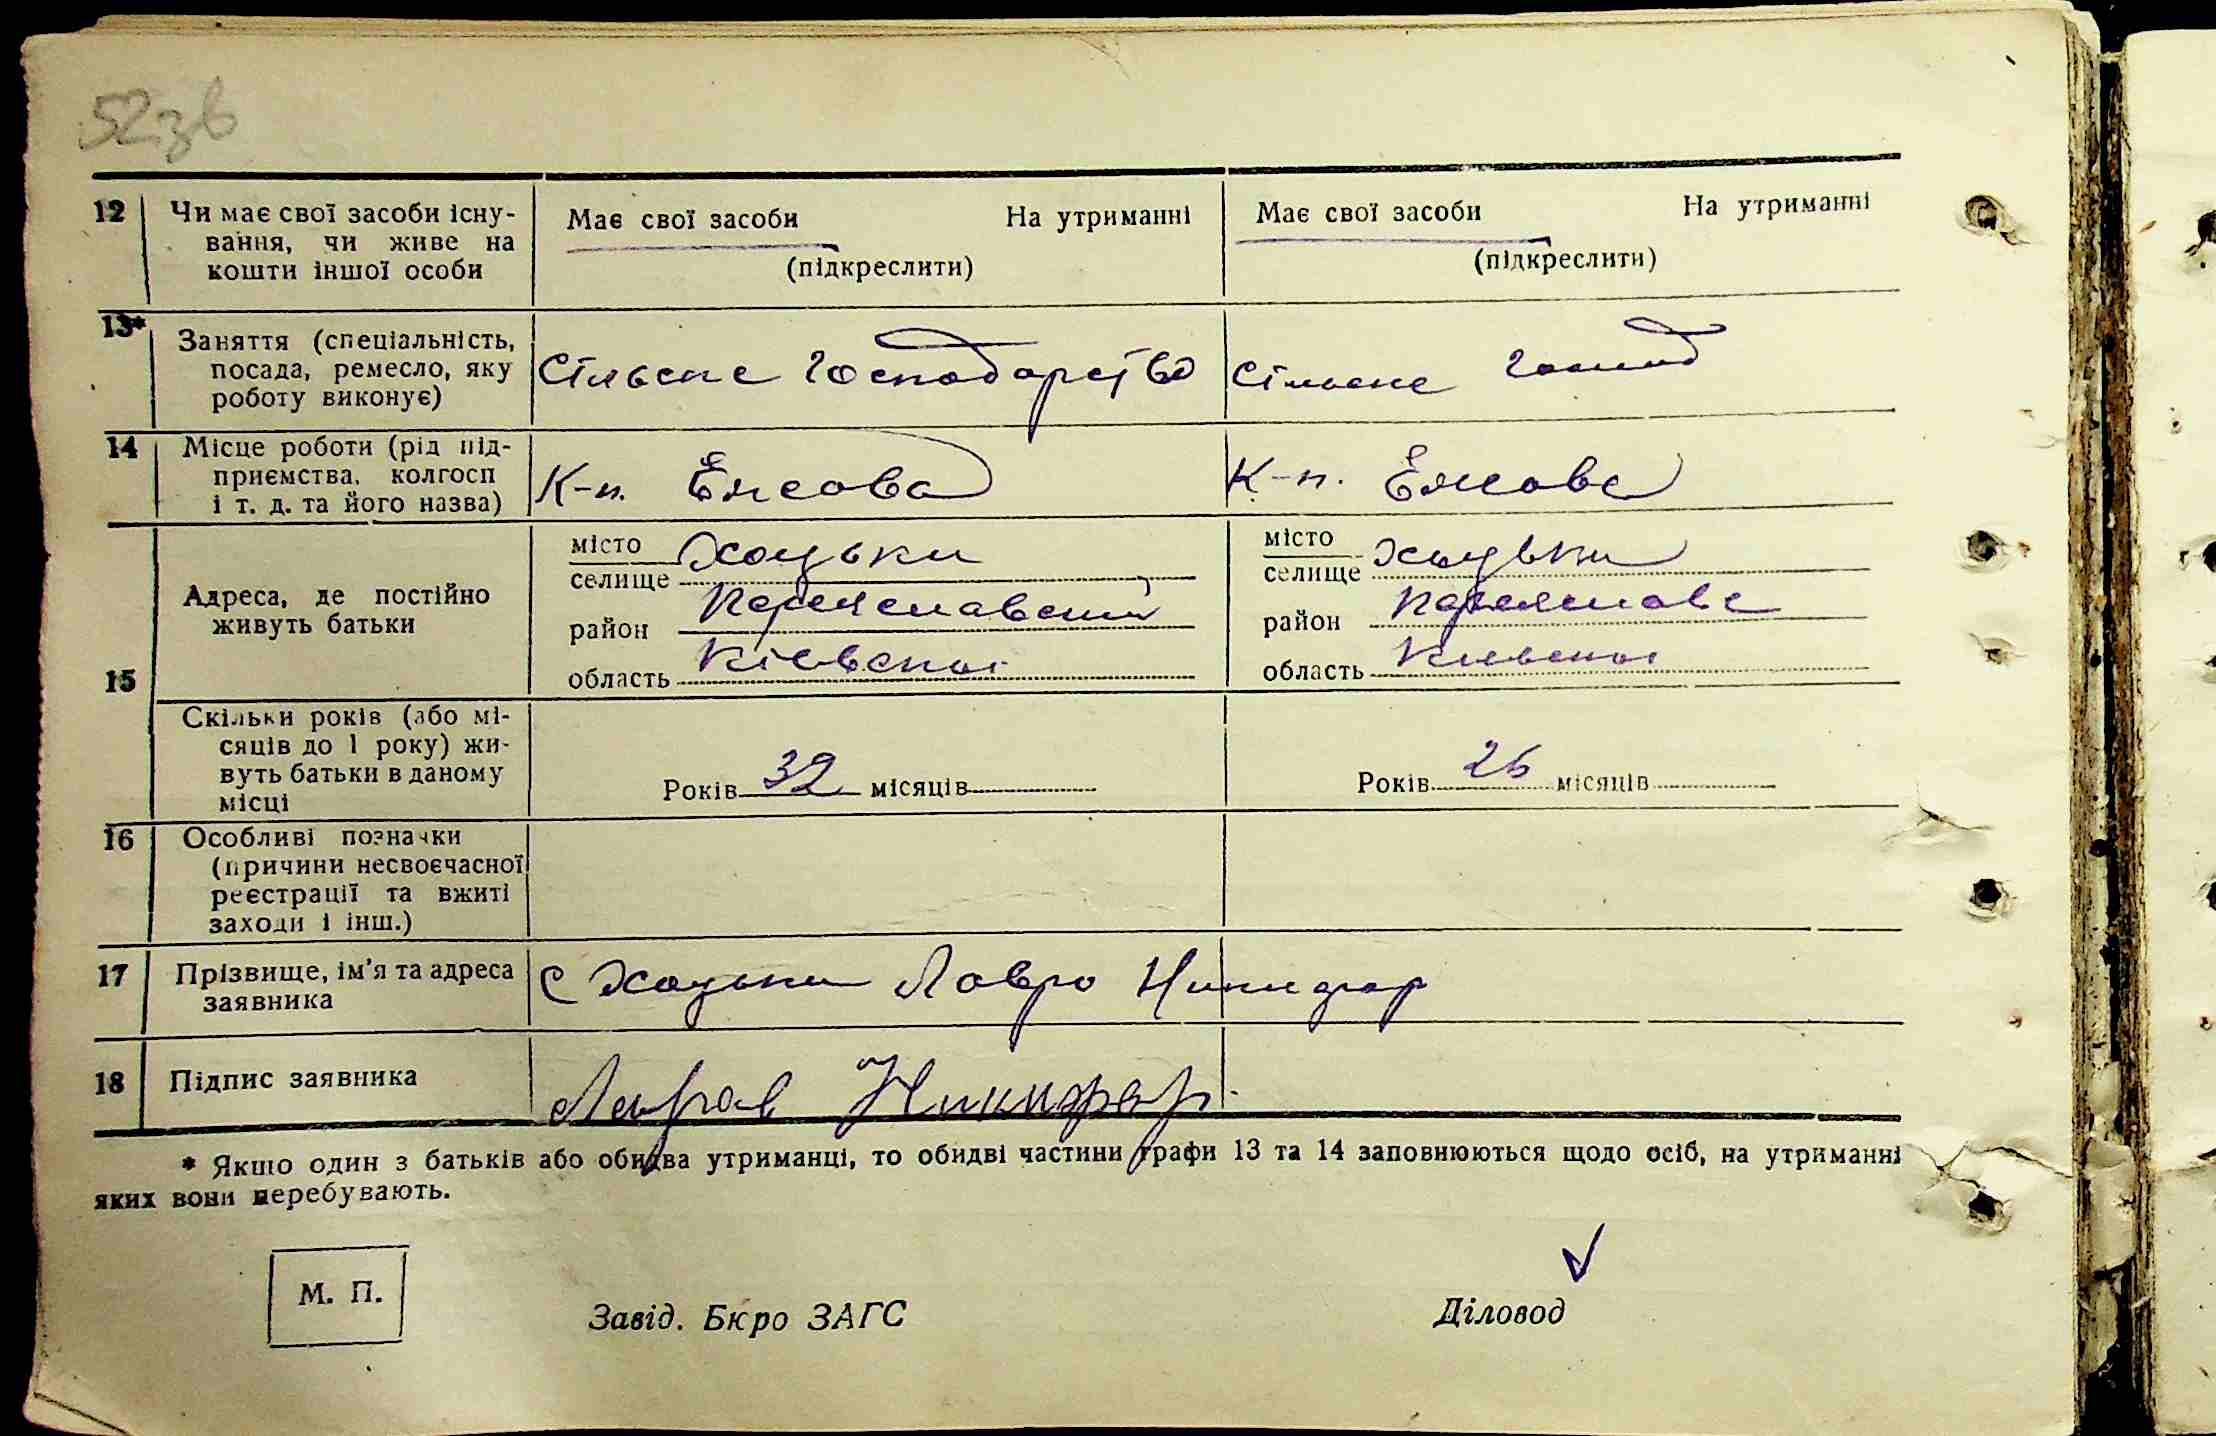 52зв
12 Чи має свої засоби існу-
вання, чи живе на
кошти іншої особи
Має свої засоби На утриманні
(підкреслити)
Має свої засоби На утриманні
(підкреслити)
13* Заняття (спеціальність,
посада, ремесло, яку
роботу виконує)
Сільське господарство
Сільське господ
14 Місце роботи (рід під-
приємства, колгосп
і т. д. та його назва)
К-п. Ежова
К-п. Ежова
15 Адреса, де постійно
живуть батьки
місто
селище Хоцьки
район Переяславський
область Київської
місто
селище Хоцьки
район Переяславс
область Київської
Скільки років (або мі-
сяців до 1 року) жи-
вуть батьки в даному
місці
Років 32 місяців
Років 26 місяців
16 Особливі позначки
(причини несвоєчасної
реєстрації та вжиті
заходи і інш.)
17 Прізвище, ім'я та адреса
заявника
с Хоцьки Лавро Никифор
18 Підпис заявника
Никифор.
* Якщо один з батьків або обидва утриманці, то обидві частини графи 13 та 14 заповнюються щодо осіб, на утриманні
яких вони перебувають.
М. П.
Завід. Бюро ЗАГС
Діловод